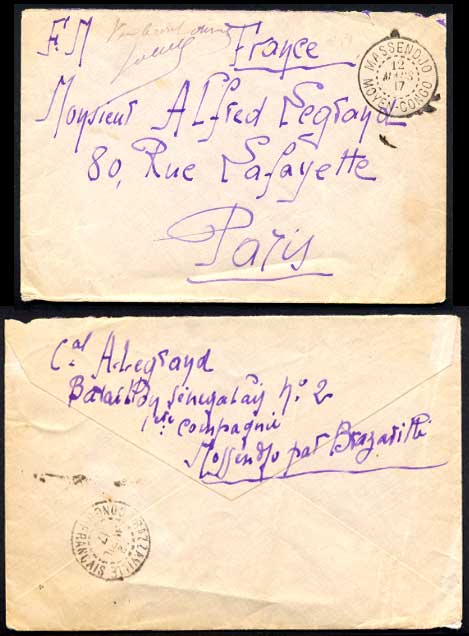 FM
France
MASSENDJO
12
MARS
17
MOYEN-CONGO
Monsieur Alfred Legrand
80, Rue Lafayette
Paris
Cal A. Legrand
Bataillon Sénégalais No 2
1ère Compagnie
Mossendjo par Brazzaville
BRAZZAVILLE
CONGO FRANCAIS